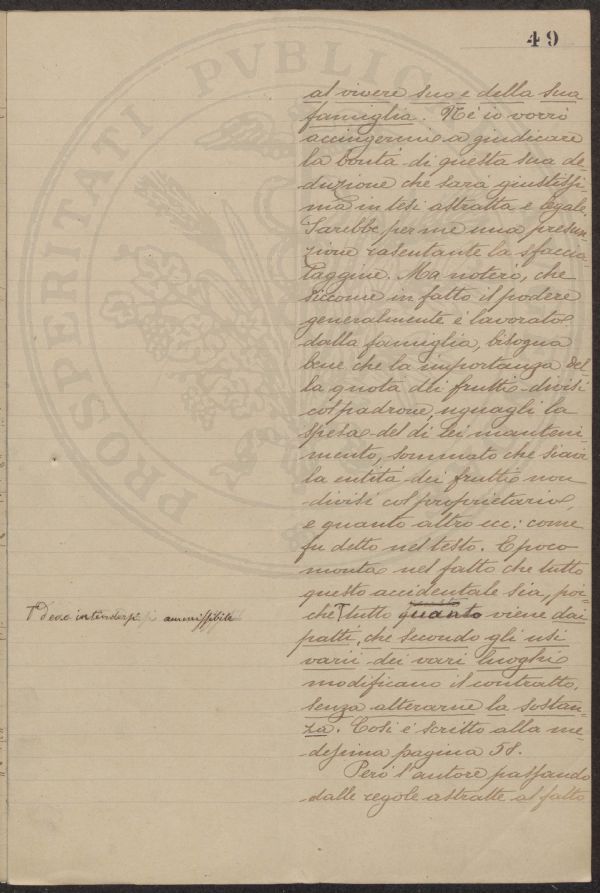 49
al vivere suo e della sua
famiglia. Né io vorrò
accingermi a giudicare
la bontà di questa sua de-
duzione che sarà giustissi-
ma in tesi astratta e legale.
Sarebbe per me una presun-
zione rasentante la sfaccia-
taggine. Ma noterò, che
siccome in fatto il podere
generalmente è lavorato
dalla famiglia, bisogna
bene che la importanza del-
la quota dei frutti divisi
col padrone, uguagli la
spesa del di lei manteni-
mento, sommato che siavi
la entità dei frutti non
divisi col proprietario,
e quanto altro ecc: come
fu detto nel testo. E poco
monta nel fatto che tutto
questo accidentale sia, poi-
chè tutto quanto viene dai
T deve intendersi ammissibile
patti, che secondo gli usi
varii dei vari luoghi
modificano il contratto,
senza alterarne la sostan-
za. Così è scritto alla me-
desima pagina 58.
Però l'autore passando
dalle regole astratte al fatto
PROSPERITATI PVBLIC